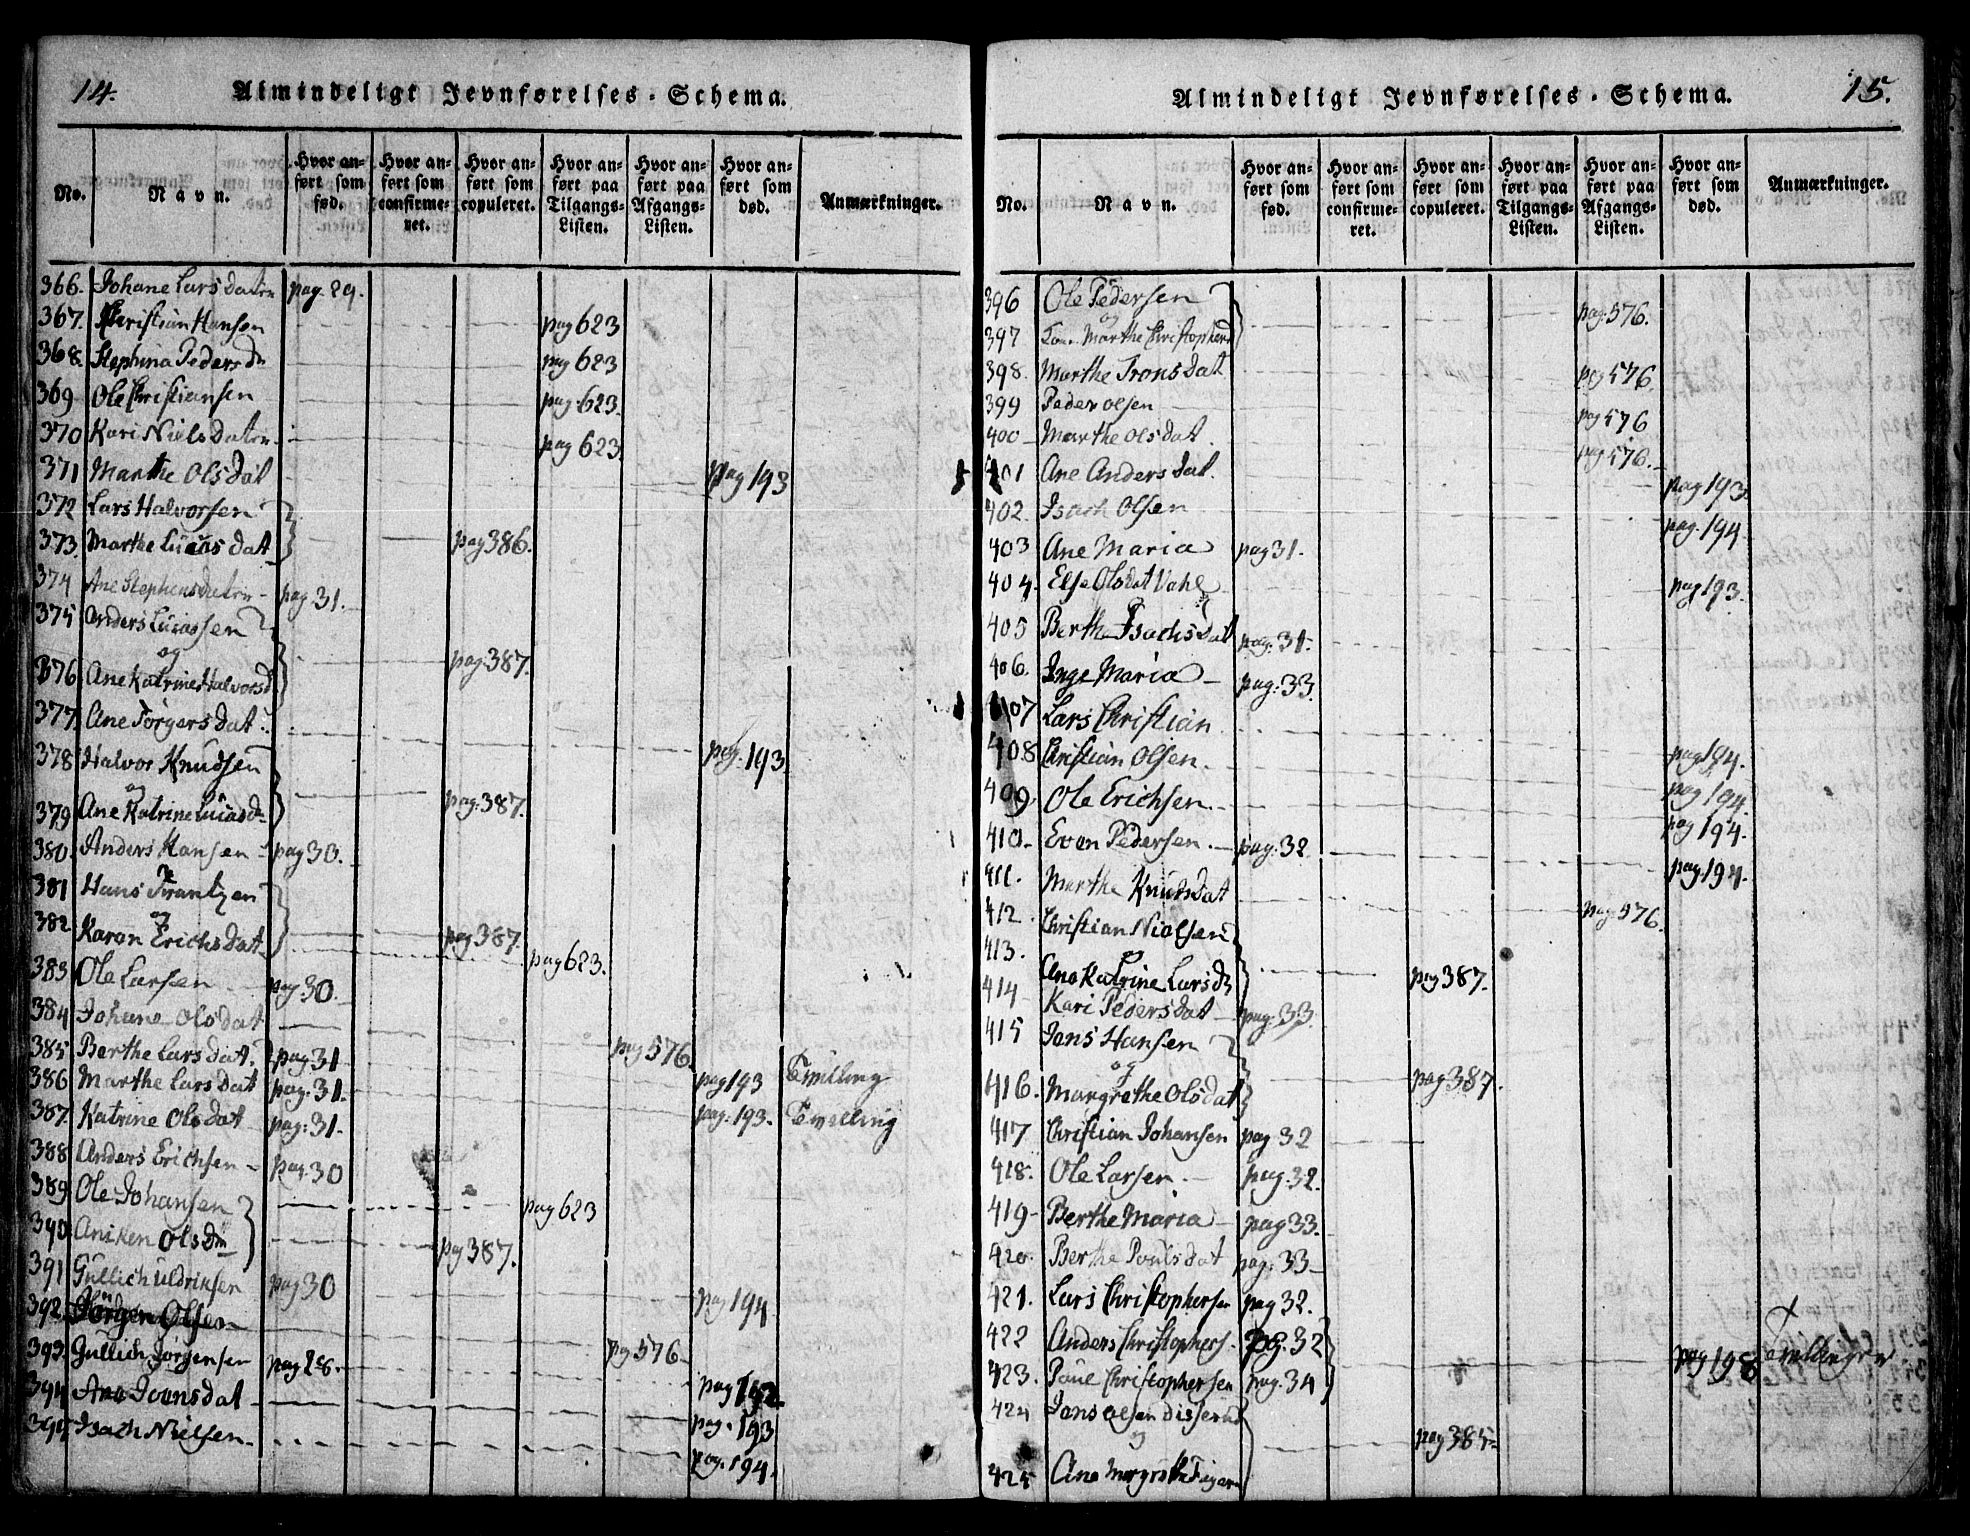 14.
Almindeligt Jevnførelses-Schema.
No.
Navn.
Hvor anført som fød.
Hvor anført som confirmeret.
Hvor anført som copuleret.
Hvor anført paa Tilgangs-Listen.
Hvor anført paa Afgangs-Listen.
Hvor anført som død.
Anmærkninger.
366. Johane Lars Datter pag. 29.
367. Christian Hansen pag 623
368. Stephina Peders Dr pag 623
369 Ole Christiansen pag. 623.
370 Kari Niels Datter pag 623.
371 Marthe Olsdat pag 193
372 Lars Halvorsen
373. Marthe Lucas dat pag 386.
374 Ane Stephensdatter pag 31.
375 Anders Lucassen
og
376 Ane Katrine Halvorsd pag 387.
377. Ane Jørgersdat. pag. 193.
378 Halvor Knudsen
og
379 Ane Katrine Lucasd pag. 387.
380. Anders Hansen pag 30.
381 Hans Frantzen
og
382 Karen Erichsdat pag 387. pag 623.
383 Ole Larsen pag 30.
384 Johane Olsdat pag 576.
385 Berthe Larsdat. pag 31 pag 193 Tvilling
386 Marthe Larsdat pag. 31. pag. 193. Tvelling
387. Katrine Olsdat pag. 31.
388 Anders Erichsen pag. 30
389 Ole Johansen pag 623
390 Aniken Olsdr pag 387.
391 Gullich Uldriksen pag 30 pag 194
392. Jørgen Olsen pag 576
393. Gullich Jørgensen pag 28. pag 192.
394 Ane Jounsdat pag. 193
395 Isach Nielsen. pag. 194.
15.
Almindeligt Jevnførelses-Schema.
No.
Navn.
Hvor anført som fød.
Hvor anført som confirmeret.
Hvor anført som copuleret.
Hvor anført paa Tilgangs-Listen.
Hvor anført paa Afgangs-Listen.
Hvor anført som død.
Anmærkninger.
396 Ole Pedersen
og
397 Marthe Christophersd pag. 576.
398. Marthe Tronsdat pag 576.
399 Peder olsen pag 576
400 Marthe Olsdat. pag 576.
401 Ane Andersdat. pag 193.
402. Isach Olsen pag. 194
403 Ane Maria pag 31.
404. Else Olsdat Vahl pag 193.
405 Berthe Isachsdat pag. 31.
406. Inge Maria pag. 33.
407 Lars Christian pag 194.
408 Christian Olsen. pag 194
409. Ole Erichsen pag 194.
410. Even Pedersen. pag. 32 pag. 194.
411. Marthe Knudsdat pag. 576.
412. Christian Nielsen
og
413. Ane Katrine Larsdr pag 387.
414 Kari Pedersdat pag. 33.
415 Jens Hansen
og
416. Margrethe Olsdat pag 387.
417 Christian Johansen pag 32
418. Ole Larsen. pag. 32.
419 Berthe Maria pag 33.
420. Berthe Poulsdat pag. 33
421. Lars Christophersen pag 32.
422 Anders Christophers. pag. 32 pag 198
423. Poul Christophersen pag. 34
424 Jens Olsen Disserud
og
425 Ane Margrethe pag 385.